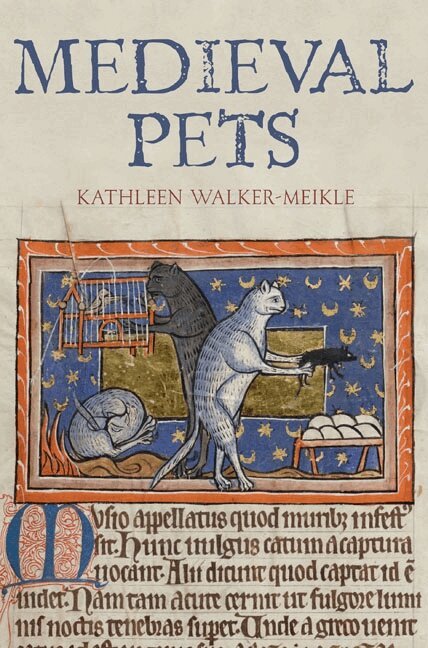 MEDIEVAL
PETS
KATHLEEN WALKER-MEIKLE
Musio appellatus quod muribꝫ infestꝰ
sit. Hunc uulgus catum a captura
uocant. Alii dicunt quod captat id ē
uidet. Nam tam acute cernit ut fulgore lumi
nis noctis tenebras suꝑet. Unde a greco uenit